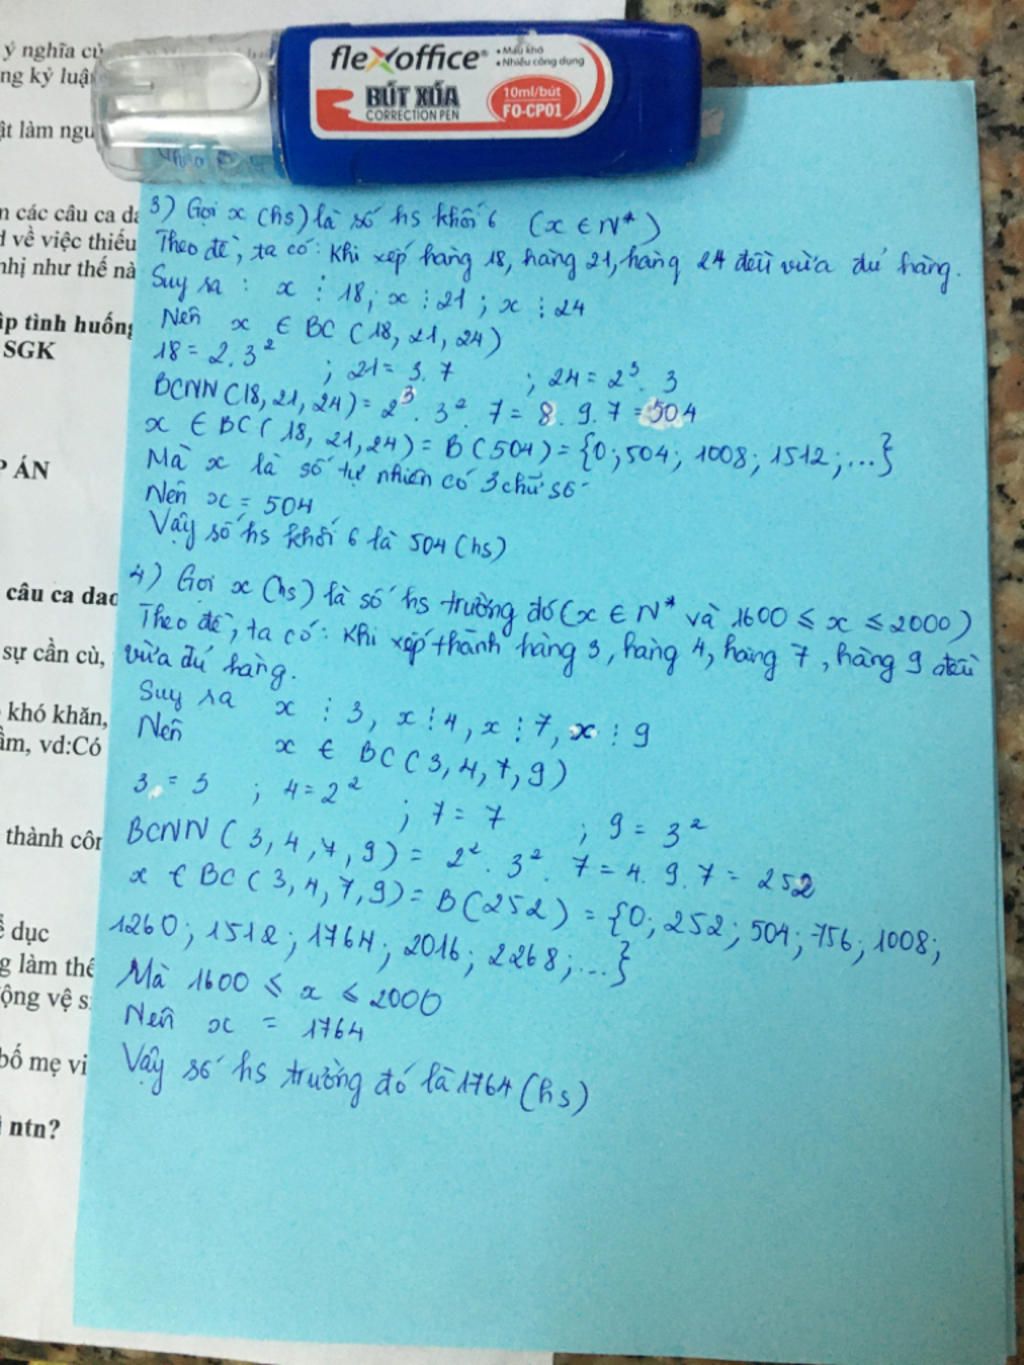 ý nghĩa củ
ng kỷ luậ
ật làm ngu
n các câu ca da
d về việc thiếu
nhị như thế nà
ập tình huống
SGK
P ÁN
câu ca dao
sự cần cù,
khó khăn,
ầm, vd:Có
thành côn
ể dục
g làm thế
ộng vệ s
bố mẹ vi
ntn?
flexoffice
• Mau khô
• Nhiều công dụng
BÚT XÓA
CORRECTION PEN
10ml/bút
FO-CP01
3) Gọi x (hs) là số hs khối 6 (x ∈ N*)
Theo đề, ta có: Khi xếp hàng 18, hàng 21, hàng 24 đều vừa đủ hàng.
Suy ra : x ⋮ 18; x ⋮ 21 ; x ⋮ 24
Nên x ∈ BC (18, 21, 24)
18 = 2.3² ; 21 = 3.7 ; 24 = 2³.3
BCNN(18, 21, 24) = 2³.3².7 = 8.9.7 = 504
x ∈ BC(18, 21, 24) = B(504) = {0; 504; 1008; 1512;...}
Mà x là số tự nhiên có 3 chữ số
Nên x = 504
Vậy số hs khối 6 là 504 (hs)
4) Gọi x (hs) là số hs trường đó (x ∈ N* và 1600 ≤ x ≤ 2000)
Theo đề, ta có: Khi xếp thành hàng 3, hàng 4, hàng 7, hàng 9 đều
vừa đủ hàng.
Suy ra x ⋮ 3, x ⋮ 4, x ⋮ 7, x ⋮ 9
Nên x ∈ BC(3, 4, 7, 9)
3 = 3 ; 4 = 2² ; 7 = 7 ; 9 = 3²
BCNN(3, 4, 7, 9) = 2².3².7 = 4.9.7 = 252
x ∈ BC(3, 4, 7, 9) = B(252) = {0; 252; 504; 756; 1008;
1260; 1512; 1764; 2016; 2268;...}
Mà 1600 ≤ x ≤ 2000
Nên x = 1764
Vậy số hs trường đó là 1764 (hs)